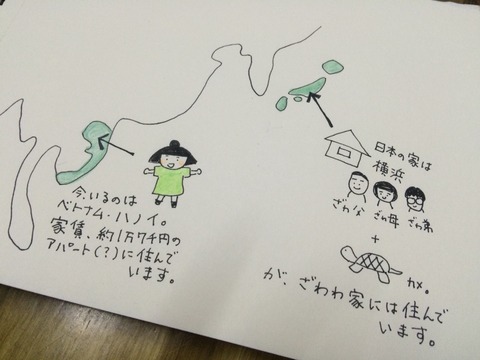 今いるのは
ベトナム・ハノイ。
家賃、約1万7千円の
アパート(?)に住んで
います。
日本の家は
横浜
ざわ父 ざわ母 ざわ弟
+
カメ。
が、ざわわ家には住んで
います。